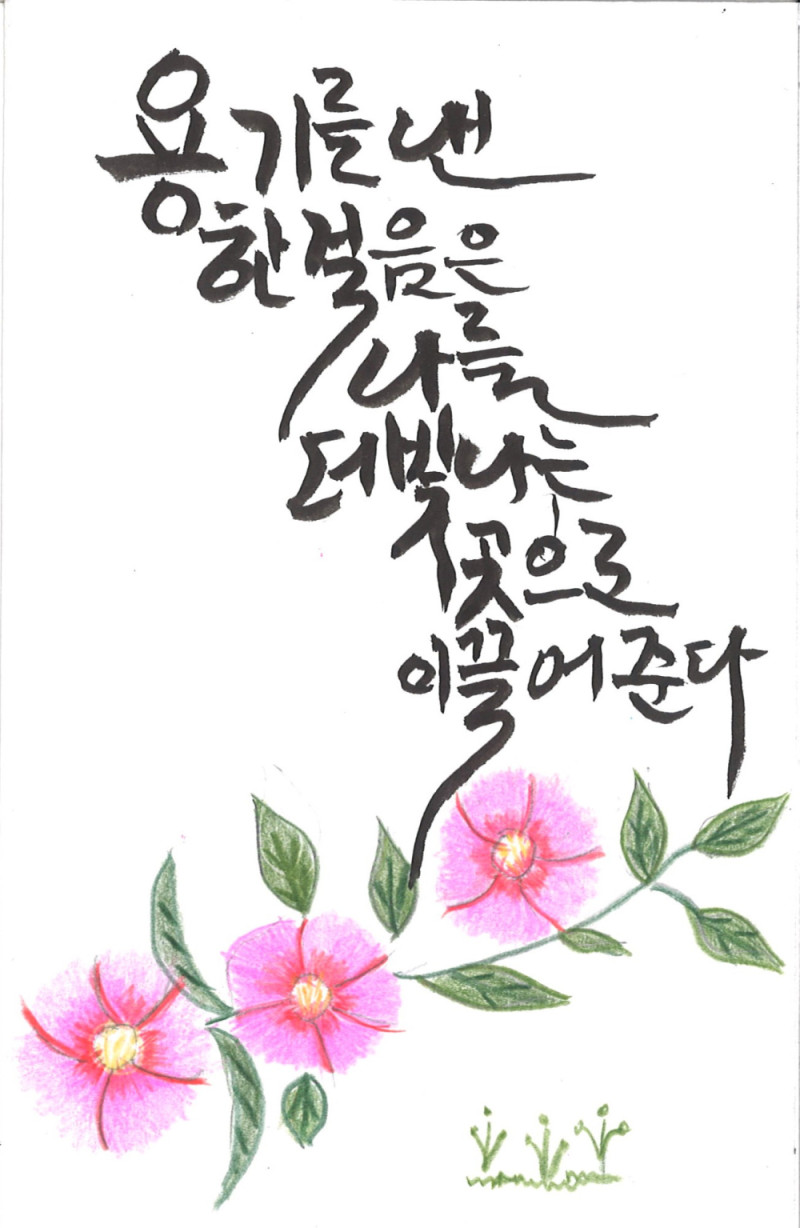 용기를 낸
한걸음은
나를
더 빛나는
꽃으로
이끌어 준다